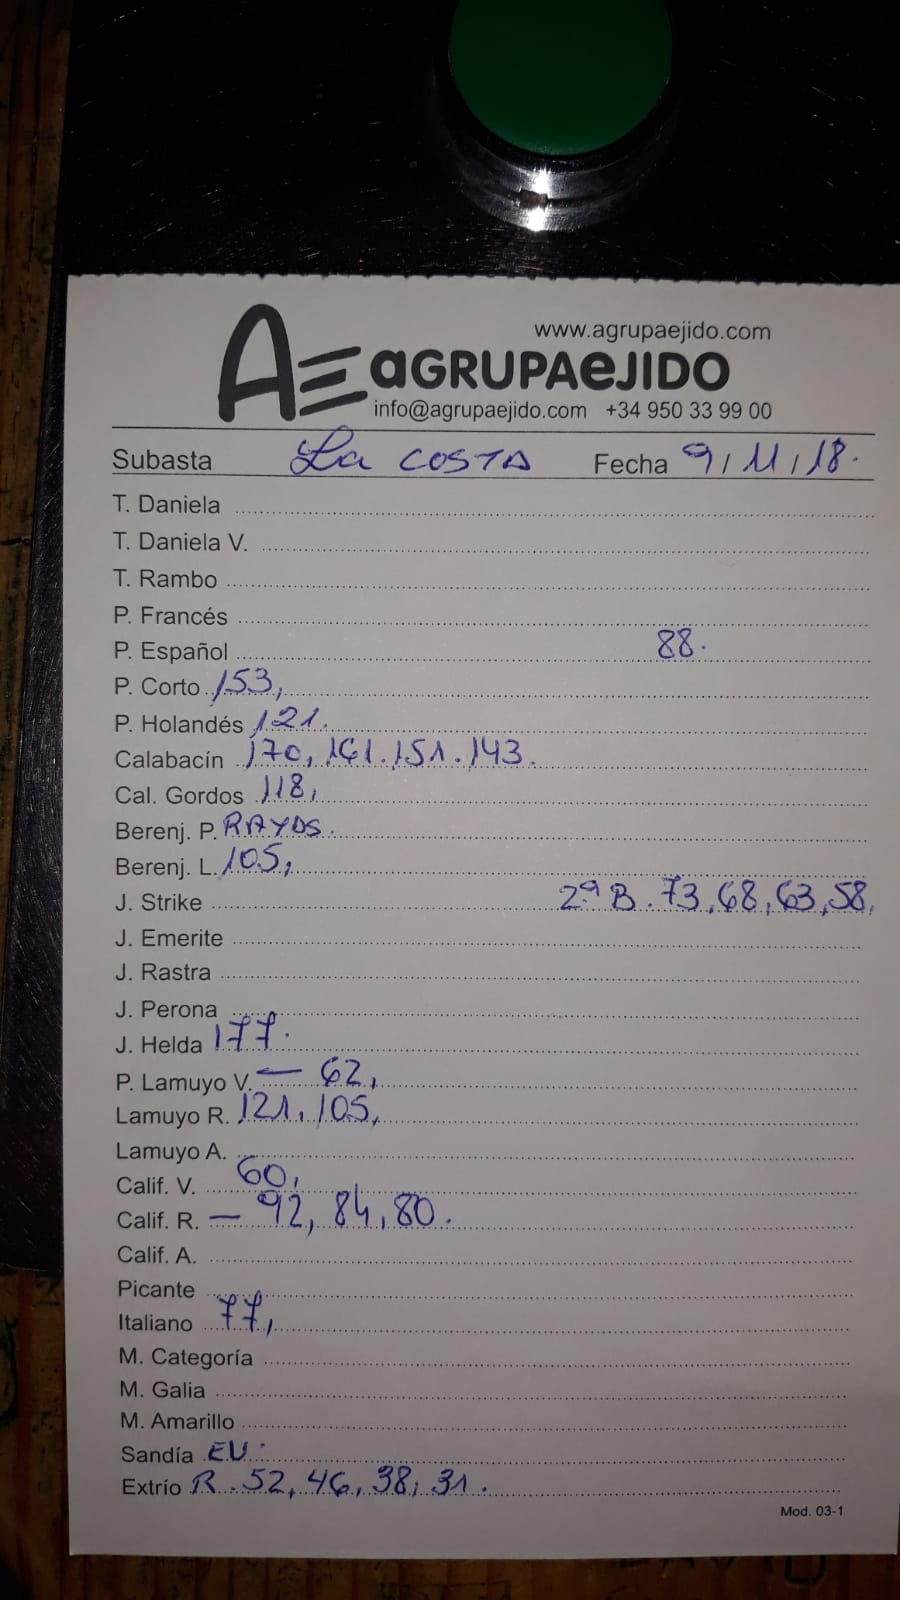 www.agrupaejido.com
AE aGRUPAeJIDO
info@agrupaejido.com +34 950 33 99 00
Subasta La COSTA Fecha 9/11/18.
T. Daniela
T. Daniela V.
T. Rambo
P. Francés
P. Español 88.
P. Corto 153,
P. Holandés 121.
Calabacín 170, 161. 151. 143.
Cal. Gordos 118,
Berenj. P. RAYOS.
Berenj. L. 105,
J. Strike 2ª B. 73, 68, 63, 58,
J. Emerite
J. Rastra
J. Perona
J. Helda 177.
P. Lamuyo V. — 62,
Lamuyo R. 121, 105,
Lamuyo A.
Calif. V. 60,
Calif. R. — 92, 84, 80.
Calif. A.
Picante
Italiano 77,
M. Categoría
M. Galia
M. Amarillo
Sandía EU.
Extrío R. 52, 46, 38, 31.
Mod. 03-1